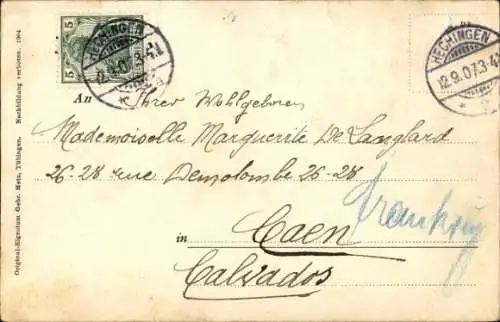 5 5
HECHINGEN
12.9.07.3-4N
a
HECHINGEN
12.9.07.3-4N
An Ihrer Wohlgeboren
Mademoiselle Marguerite De Langlard
26-28 rue Demolombe 26-28
Frankreich
in Caen
Calvados
Original-Eigentum Gebr. Metz, Tübingen. Nachbildung verboten. 1904